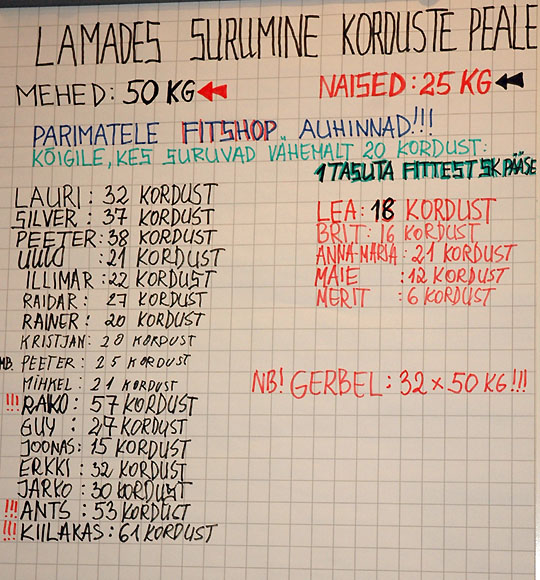 LAMADES SURUMINE KORDUSTE PEALE
MEHED: 50 KG
NAISED: 25 KG
PARIMATELE FITSHOP AUHINNAD!!!
KÕIGILE, KES SURUVAD VÄHEMALT 20 KORDUST:
1 TASUTA FITTEST SK PÄÄSE
LAURI: 32 KORDUST
SILVER: 37 KORDUST
PEETER: 38 KORDUST
UUU :21 KORDUST
ILLIMAR :22 KORDUST
RAIDAR: 27 KORDUST
RAINER: 20 KORDUST
KRISTJAN: 28 KORDUST
MB. PEETER: 25 KORDUST
MIHKEL: 21 KORDUST
!!! RAKO: 57 KORDUST
GUY : 27 KORDUST
JOONAS: 15 KORDUST
ERKKI : 32 KORDUST
JARKO: 30 KORDUST
!!! ANTS : 53 KORDUST
!!! KIILAKAS: 61 KORDUST
LEA: 18 KORDUST
BRIT: 16 KORDUST
ANNA-MARIA: 21 KORDUST
MAIE :12 KORDUST
MERIT : 6 KORDUST
NB! GERBEL: 32 x 50 KG!!!